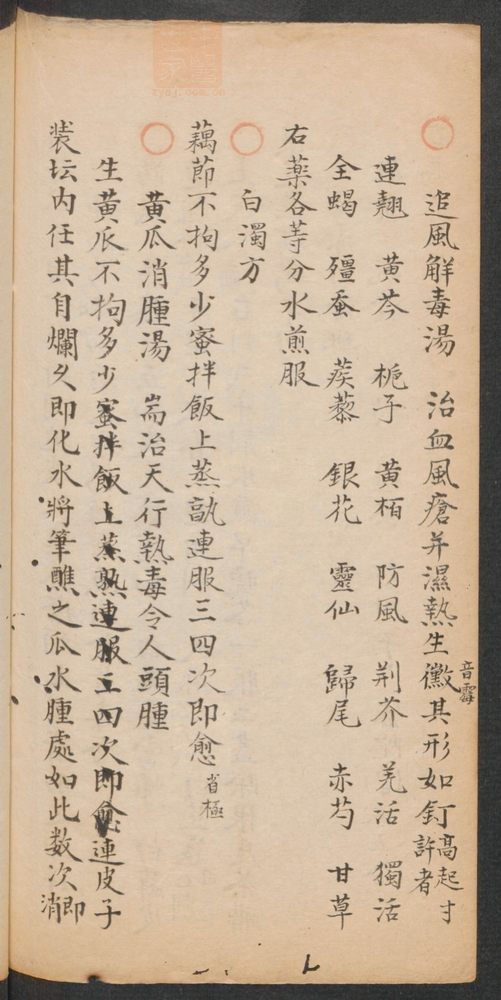 追風解毒湯 治血風瘡并濕熱生黴音霉其形如釘高起寸許者
連翹 黄芩 梔子 黄栢 防風 荆芥 羌活 獨活
全蝎 殭蚕 蒺藜 銀花 靈仙 歸尾 赤芍 甘草
右薬各等分水煎服
白濁方
藕節不拘多少蜜拌飯上蒸熟連服三四次即愈省極
黄瓜消腫湯 耑治天行熱毒令人頭腫
生黄瓜不拘多少蜜拌飯上蒸熟連服三四次即愈連皮子
裝坛内任其自爛久即化水將筆蘸之瓜水腫處如此数次即消